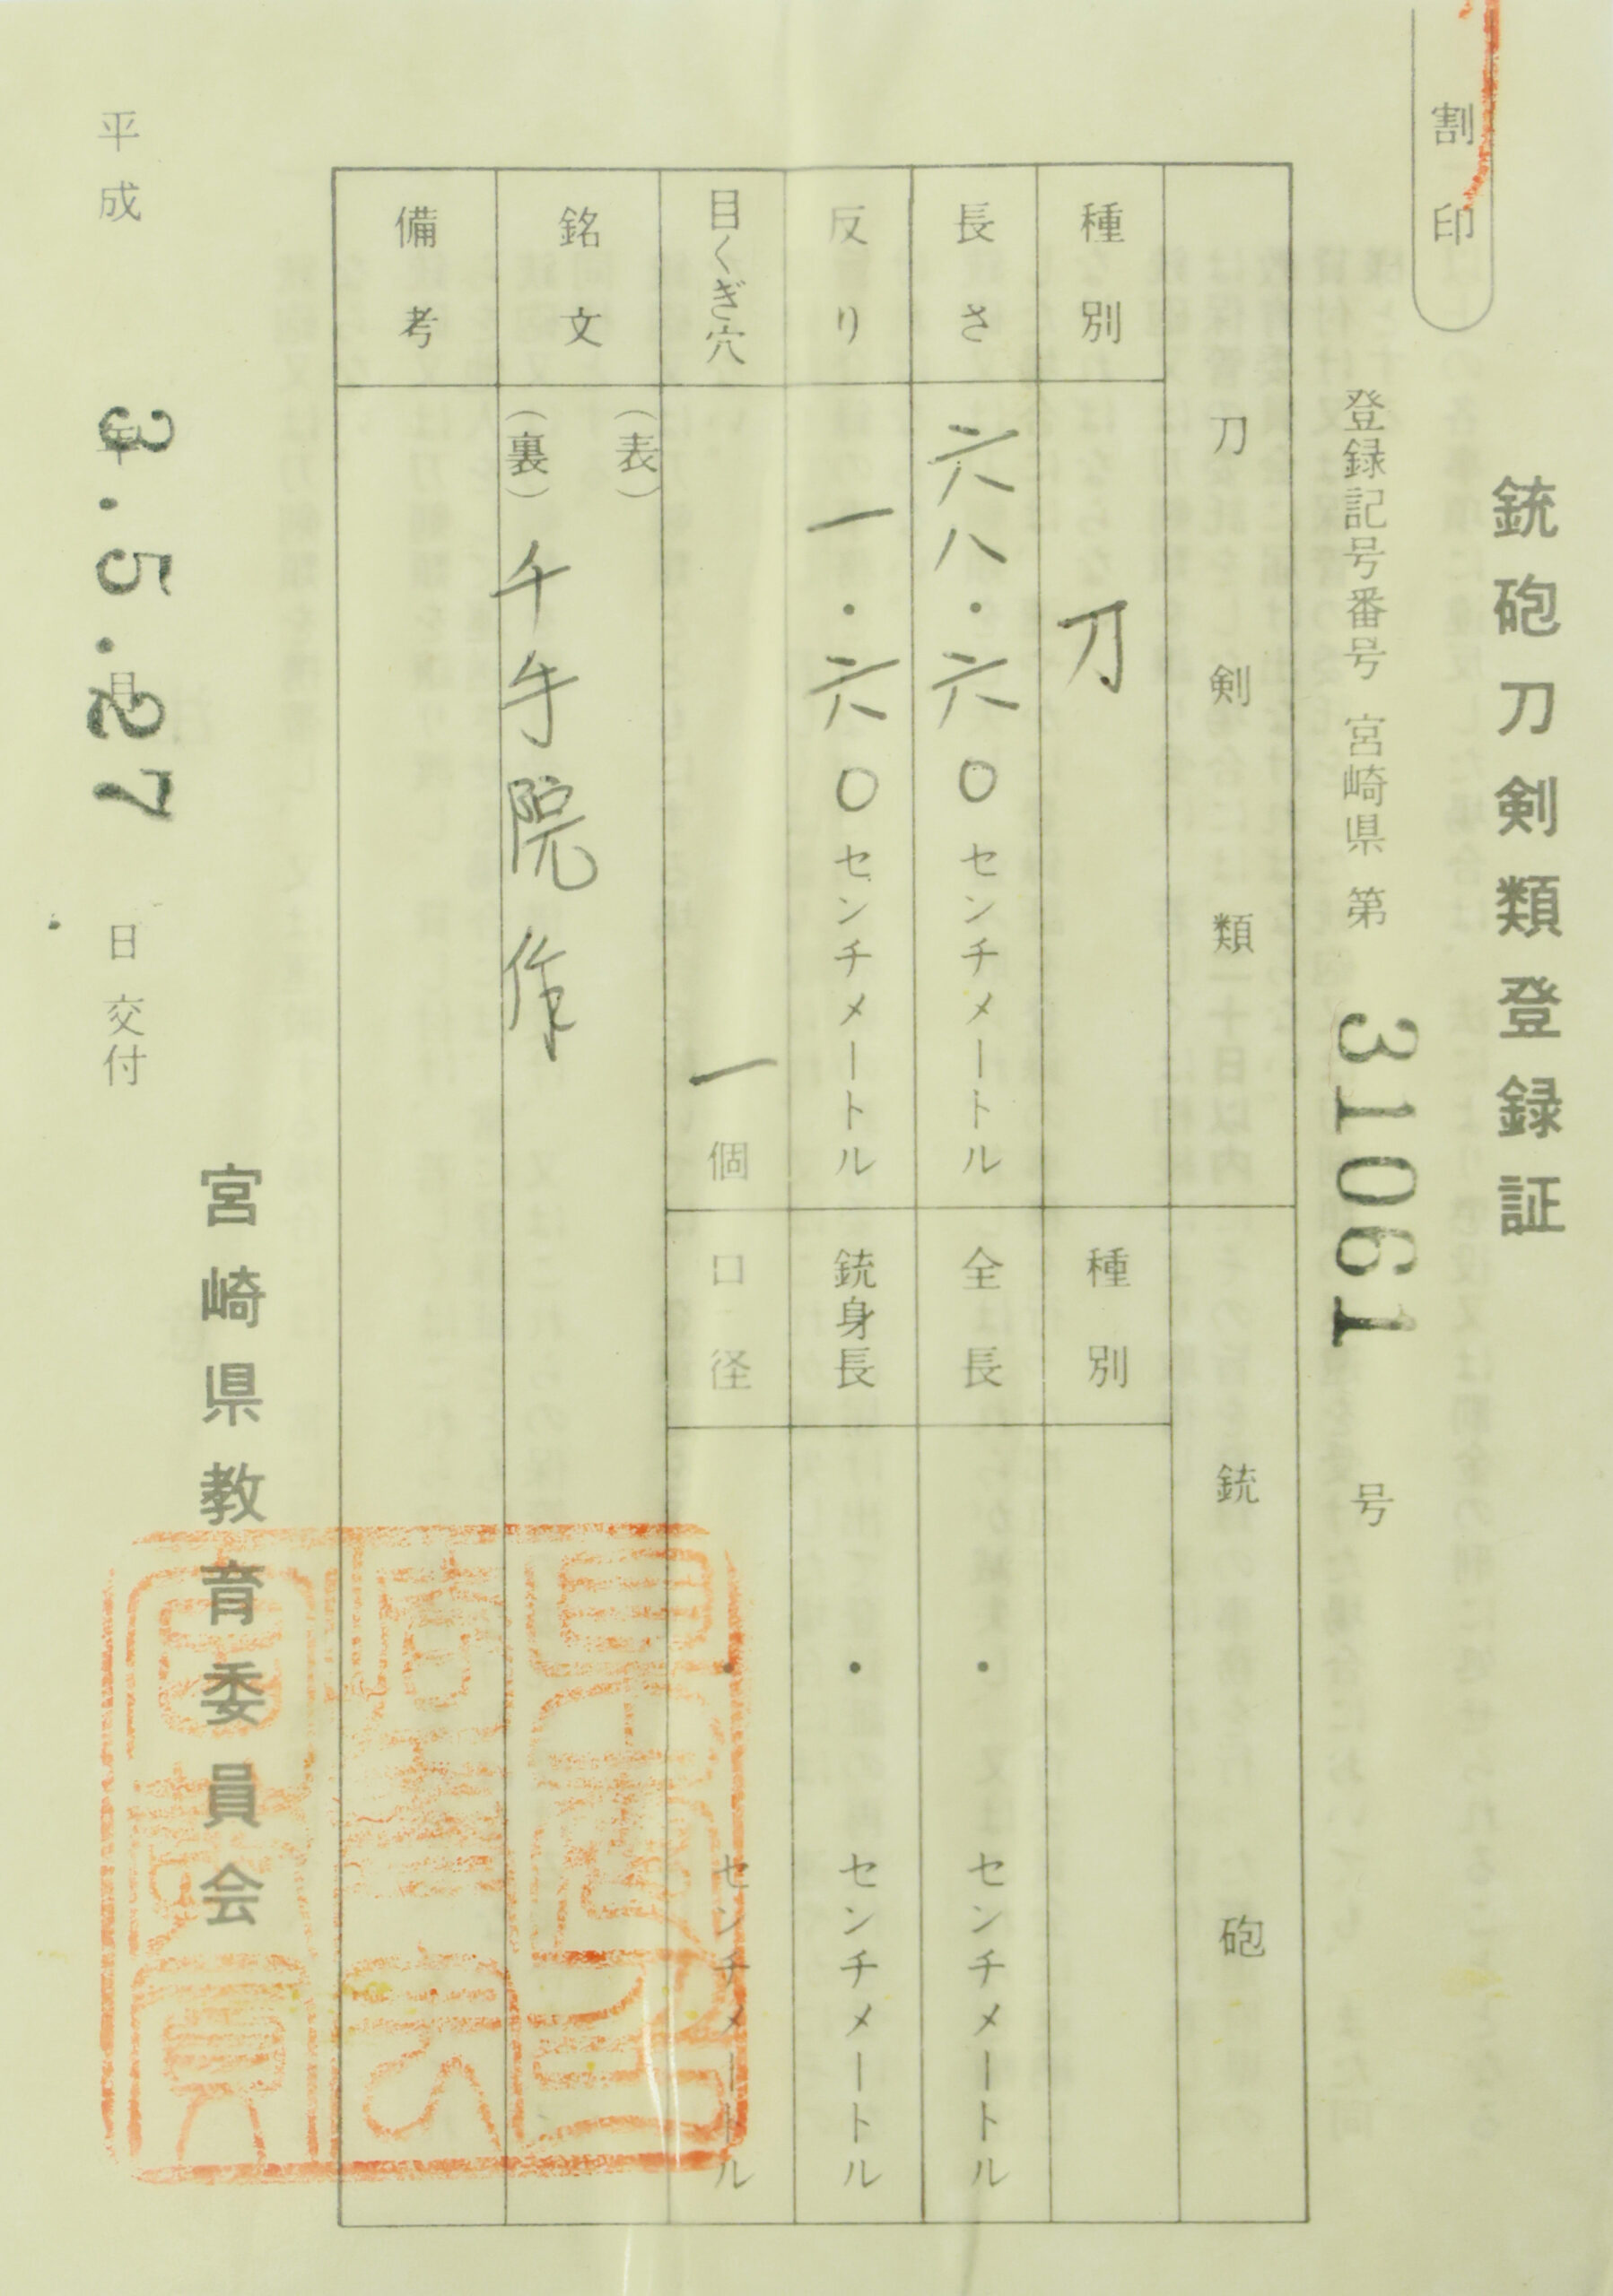 割印
銃砲刀剣類登録証
登録記号番号 宮崎県 第 31061 号
刀剣類
銃砲
種別
刀
種別
長さ
六八・六〇センチメートル
全長
・センチメートル
反り
一・六〇センチメートル
銃身長
・センチメートル
目くぎ穴
一個
口径
・センチメートル
銘文
(表)
(裏)千手院作
備考
宮崎県教育委員会
平成 3年.5.月27日交付